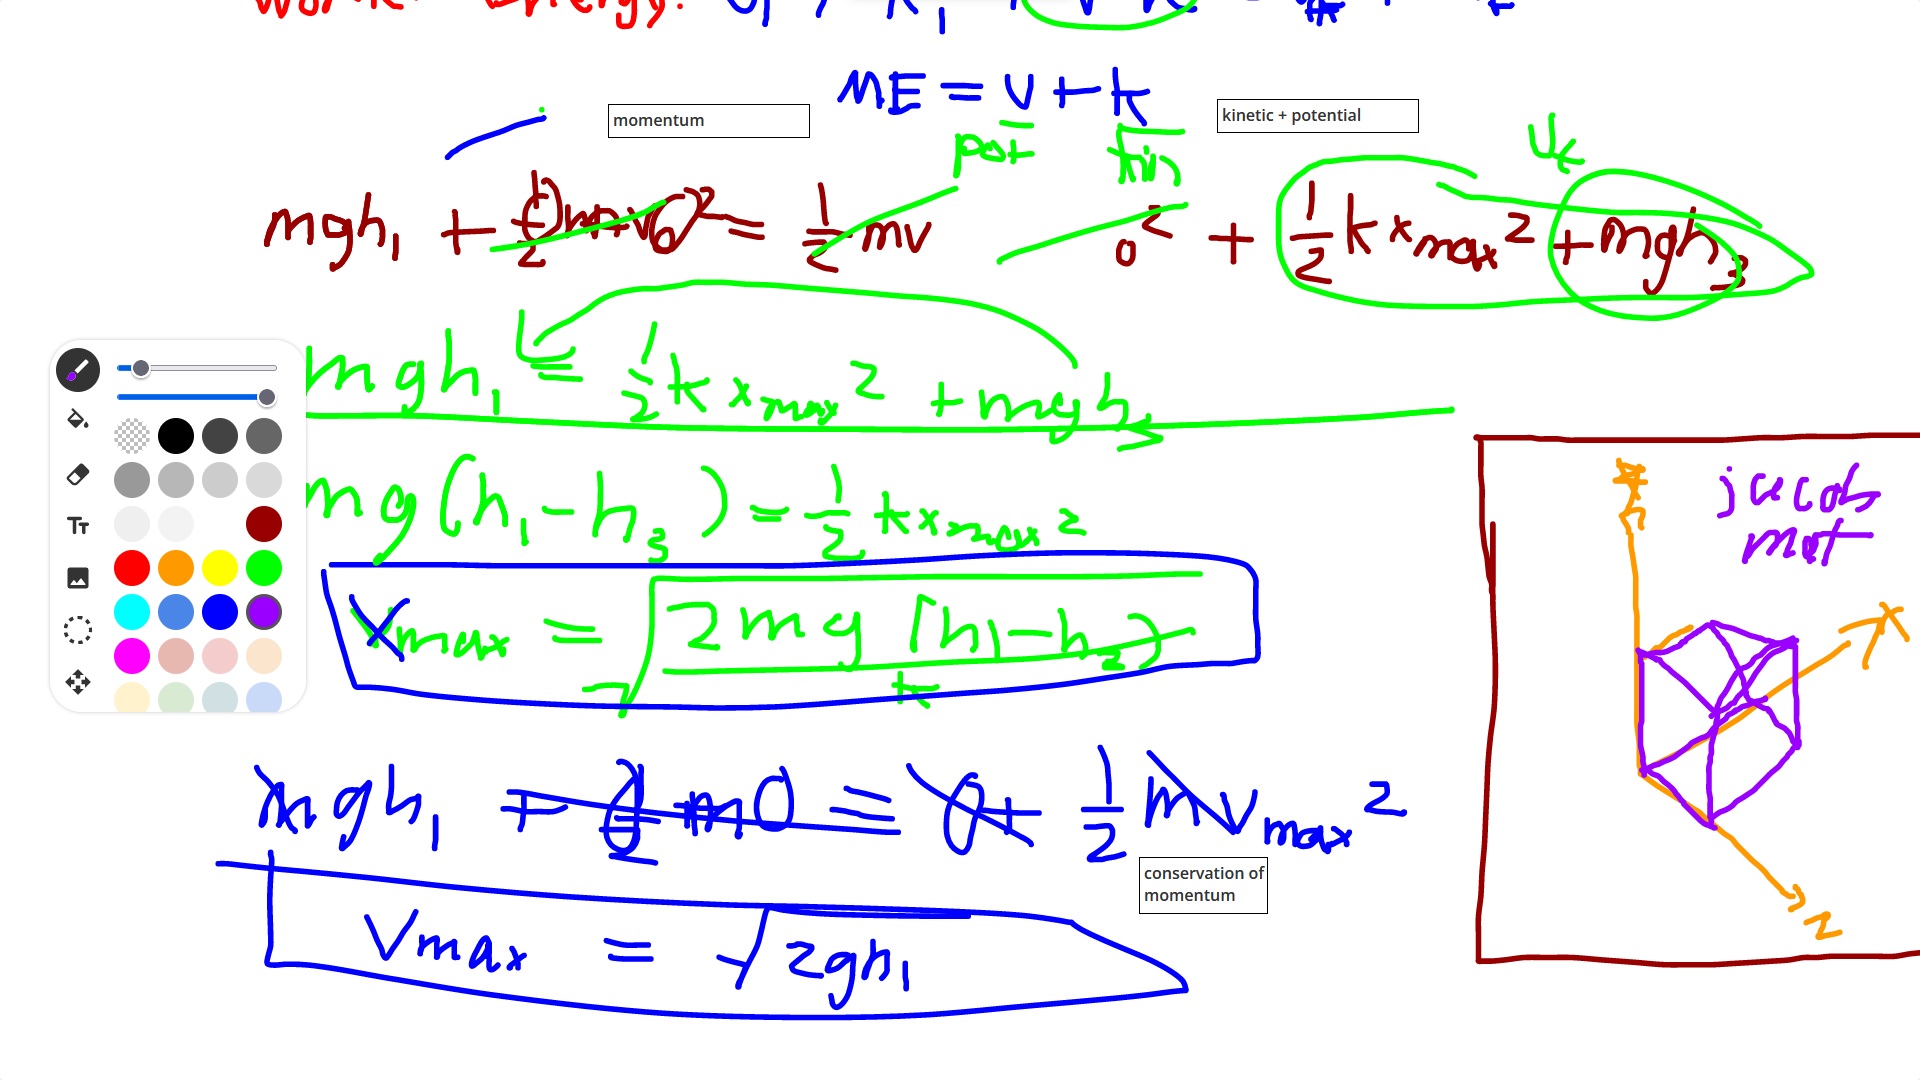 Work-Energy:
ME = U + K
momentum
kinetic + potential
pot kin
U_k
mgh₁ + ½m·v₀² = ½mv 0² + ½kx_max² + mgh₃
mgh₁ = ½kx_max² + mgh₃
mg(h₁-h₃) = ½kx_max²
jacob
mat
x_max = √2mg(h₁-h₂)
k
mgh₁ + ½m0 = 0 + ½mv_max²
conservation of
momentum
V_max = √2gh₁
z